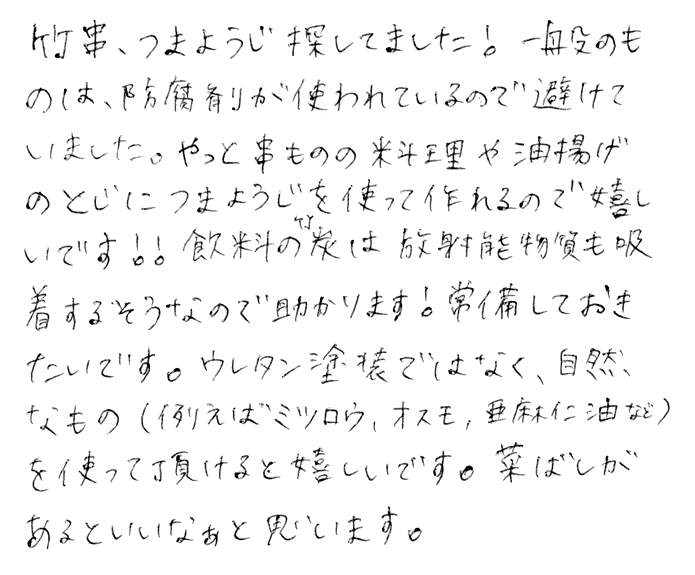 竹串、つまようじ探してました! 一般のも
のは、防腐剤が使われているので避けて
いました。やっと串ものの料理や油揚げ
のとじにつまようじを使って作れるので嬉し
いです!! 飲料の竹炭は放射能物質も吸
着するそうなので助かります! 常備しておき
たいです。ウレタン塗装ではなく、自然、
なもの(例えばミツロウ, オスモ, 亜麻仁油など)
を使って頂けると嬉しいです。菜ばしが
あるといいなぁと思います。